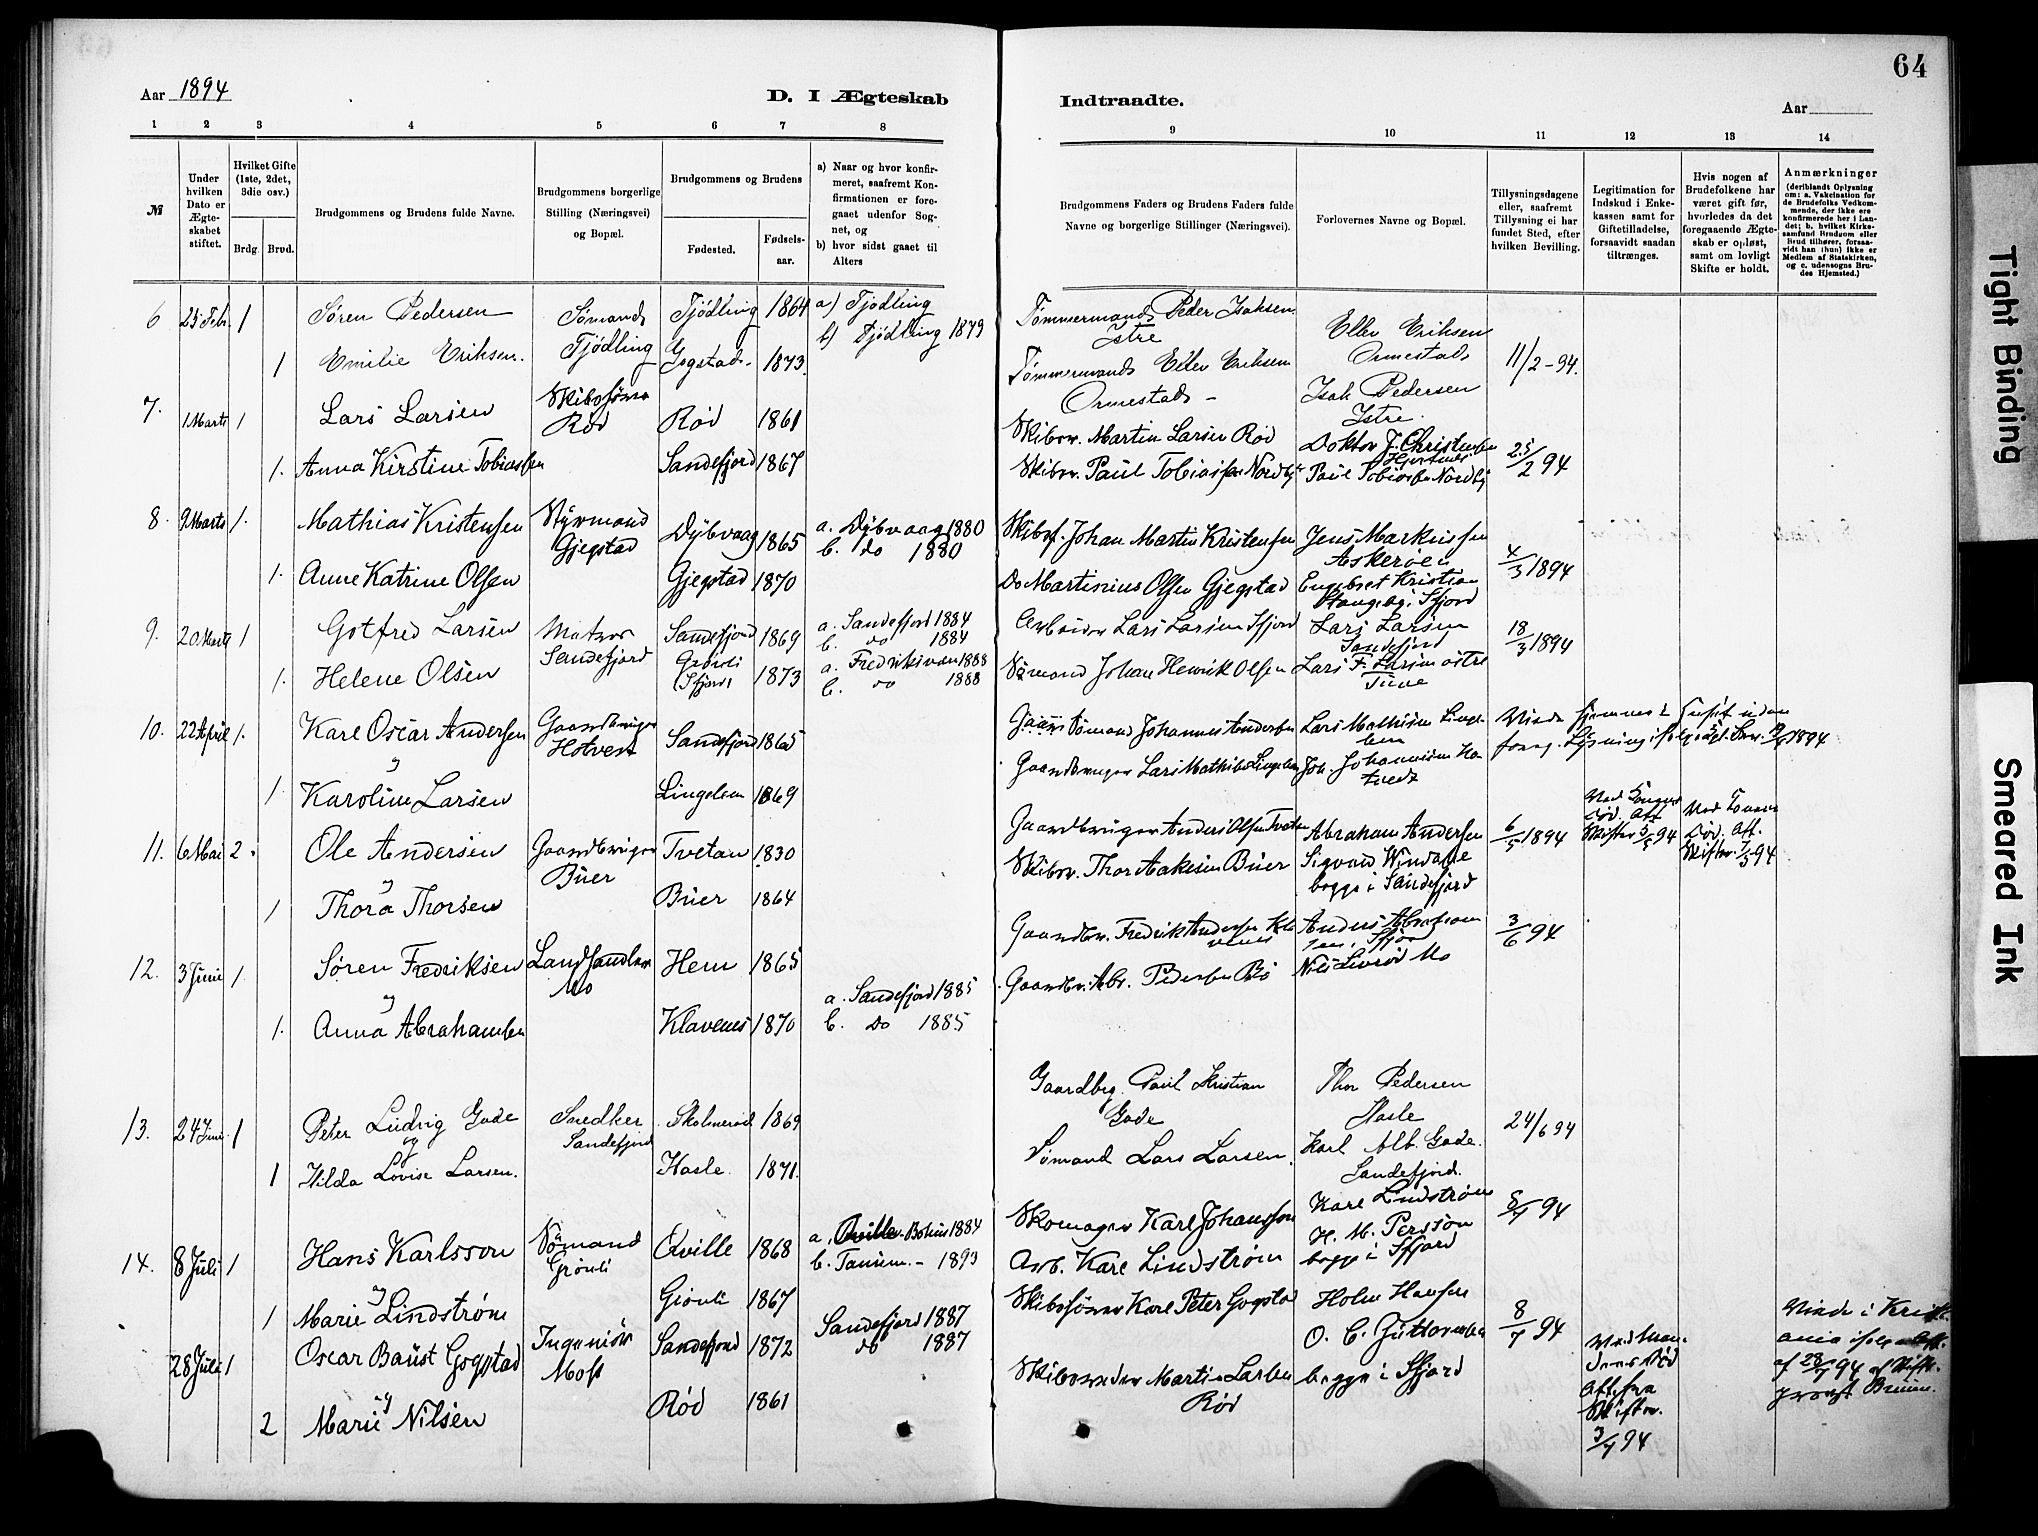 64
Aar 1894
D. I Ægteskab
Indtraadte.
Aar
1 2 3 4 5 6 7 8 9 10 11 12 13 14
№
Under hvilken Dato er Ægteskabet stiftet.
Hvilket Gifte (1ste, 2det, 3die osv.)
Brdg. Brud.
Brudgommens og Brudens fulde Navne.
Brudgommens borgerlige Stilling (Næringsvei) og Bopæl.
Brudgommens og Brudens
Fødested.
Fødsels-aar.
a) Naar og hvor konfirmeret, saafremt Konfirmationen er foregaaet udenfor Sognet, og
b) hvor sidst gaaet til Alters
Brudgommens Faders og Brudens Faders fulde Navne og borgerlige Stillinger (Næringsvei).
Forlovernes Navne og Bopæl.
Tillysningsdagene eller, saafremt Tillysning ei har fundet Sted, efter hvilken Bevilling.
Legitimation for Indskud i Enkekassen samt for Giftetilladelse, forsaavidt saadan tiltrænges.
Hvis nogen af Brudefolkene har været gift før, hvorledes da det foregaaende Ægteskab er opløst, samt om lovligt Skifte er holdt.
Anmærkninger
(deriblandt Oplysning om: a. Vakcination for de Brudefolks Vedkommende, der ikke ere konfirmerede her i Landet; b. hvilket Kirkesamfund Brudgom eller Brud tilhører, forsaavidt han (hun) ikke er Medlem af Statskirken, og c. udensogns Brudes Hjemsted.)
6 25 Febr. 1 Søren Pedersen Sømand Tjødling Tjødling 1864 a) Tjødling b) Tjødling 1879 Tømmermand Peder Isaksen Istre Ellev Eriksen Ormestad 11/2-94.
1 Emilie Eriksen. Gogstad 1873. Tømmermand Ellev Eriksen Ormestad - Isak Pedersen Istre.
7. 1 Marts 1 Lars Larsen Skibsfører Rød Rød 1861 Skibsr. Martin Larsen Rød Doktor J. Christensen 25/2 94
1. Anna Kirstine Tobiassen Sandefjord 1867 Skibsr. Paul Tobiassen Nordby Paul Tobiassen Nordby
8. 9 Marts 1. Mathias Kristensen Styrmand Gjegstad Dybvaag 1865 a. Dybvaag 1880 b. do 1880 Skibsf. Johan Martin Kristensen Jens Markussen Askerøen 4/3 1894
1. Anne Katrine Olsen Gjegstad 1870 Do Martinius Olsen Gjegstad Engebret Kristian Stangeby i Sfjord
9. 20 Marts 1 Gotfred Larsen Matros Sandefjord Sandefjord 1869 a. Sandefjord 1884 b. do 1884 Arbeider Lars Larsen Sfjord Lars Larsen Sandefjord 18/3 1894
1. Helene Olsen Grønli (Sfjord) 1873 a. Fredriksværn 1888 b. do 1888 Sømand Johan Henrik Olsen Lars F. Larsen østre
10. 22 April 1. Karl Oscar Andersen Gaardbruger Hotvedt Sandefjord 1865 Sømand Johannes Andersen Lars Mathisen
og
1 Karoline Larsen Lingelem 1869 Gaardbruger Lars Mathisen Lingelem Joh. Johannesen Hotvedt
11. 6 Mai 2 Ole Andersen Gaardbruger Buer Tvetan 1830 Gaardbruger Anders Olsen Tvetan Abraham Andersen 6/5 1894
og
1 Thora Thorsen Buer 1864 Skibsr. Thor Aakesen Buer Sigvard Windahl begge i Sandefjord
12. 3 Juni 1 Søren Fredriksen Landhandler Mo Hem 1865 Gaardbr. Fredrik Andersen Klavenes 3/6 94
og
1. Anna Abrahamsen Klavenes 1870 a. Sandefjord 1885 b. Do 1885 Gaardbr. Abr. Pedersen Bø Nils Liverød Mo
13. 24 Juni 1 Peter Ludvig Gade Snedker Sandefjord Skolmerød 1869 Gaardbrg. Paul Kristian Gade Thor Pedersen Hasle 24/6 94
og
1 Hilda Lovise Larsen. Hasle. 1871. Sømand Lars Larsen. Karl Alb. Gade. Sandefjord.
14. 8 Juli 1 Hans Karlsson Sømand Grønli Qville 1868 a. Qville Bohus 1884 b. Tanum - 1893 Skomager Karl Johansson Karl Lindstrøm 8/7 94
og
1 Marie Lindstrøm Grønli 1867 Arb. Karl Lindstrøm H. M. Persson begge i Sfjord
28 Juli 1 Oscar Baust Gogstad Ingeniør Moss Sandefjord 1872 Sandefjord 1887 do 1887 Skibsfører Karl Peter Gogstad Holm Hansen 8/7 94
og
2 Marie Nilsen Rød 1861 Skibsreder Martin Larsen Rød begge i Sfjord
3/7 94
Tight Binding
Smeared Ink